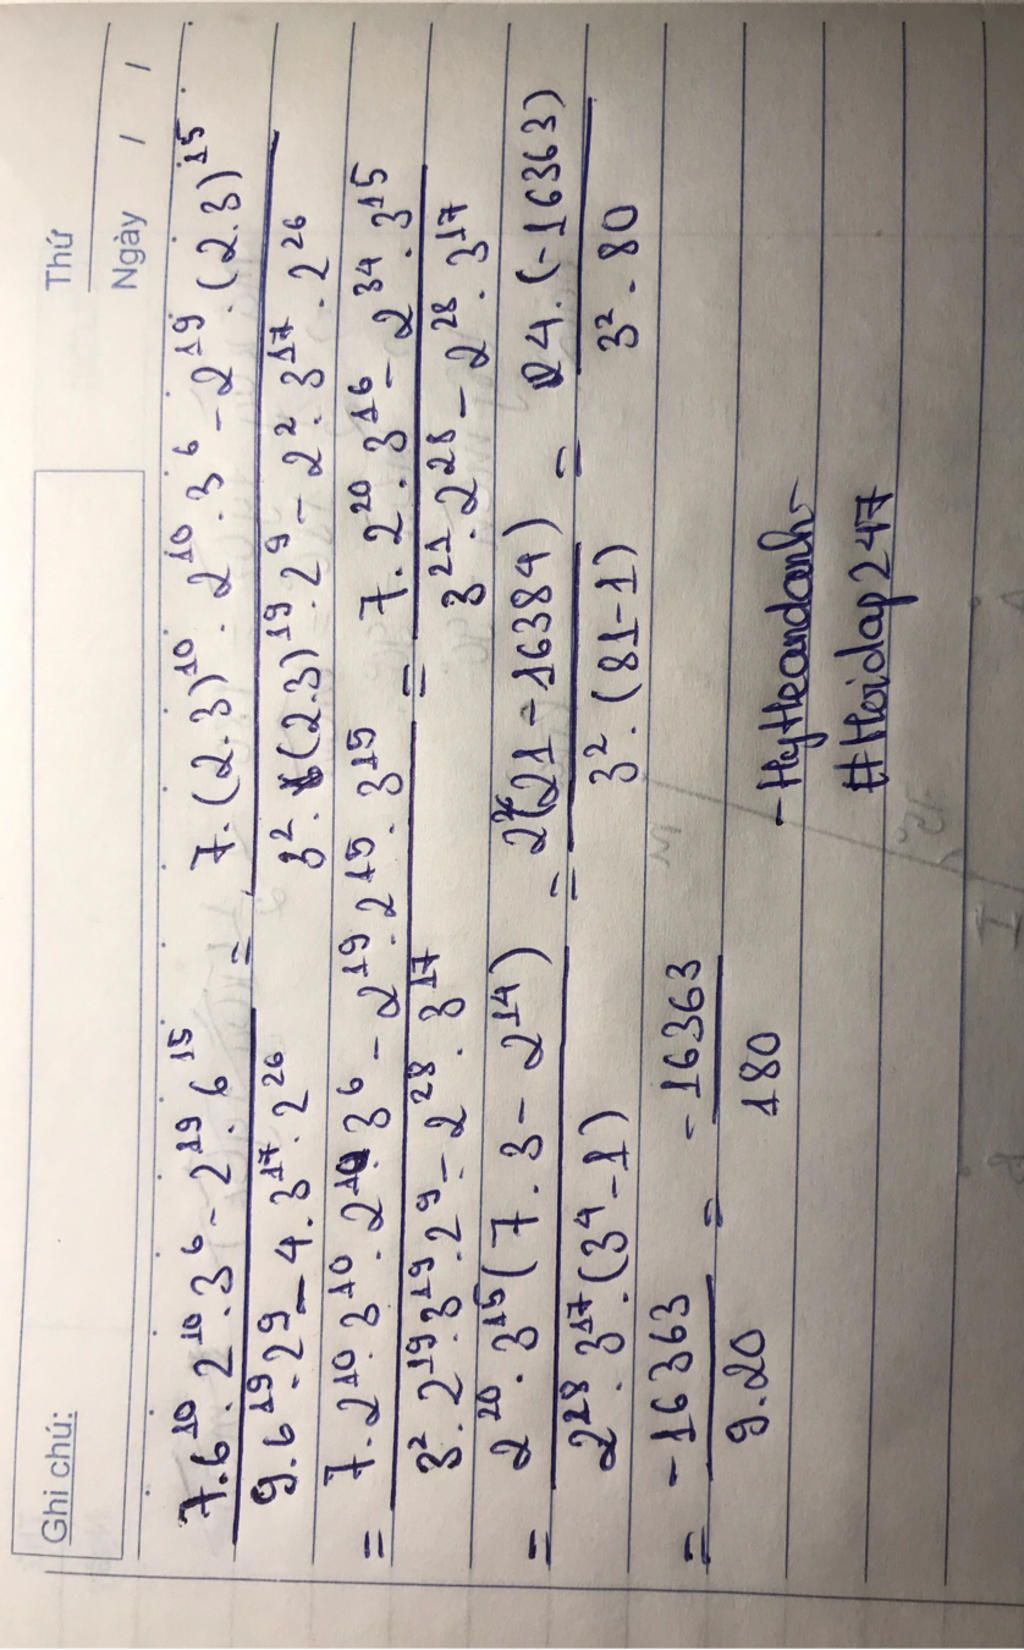 Ghi chú:
Thứ
Ngày / /
7.6¹⁰.2¹⁰.3⁶ - 2¹⁹.6¹⁵ / 9.6¹⁹.2⁹ - 4.3¹⁷.2²⁶ = 7.(2.3)¹⁰.2¹⁰.3⁶ - 2¹⁹.(2.3)¹⁵ / 3².(2.3)¹⁹.2⁹ - 2².3¹⁷.2²⁶
= 7.2¹⁰.3¹⁰.2¹⁰.3⁶ - 2¹⁹.2¹⁵.3¹⁵ / 3².2¹⁹.3¹⁹.2⁹ - 2²⁸.3¹⁷ = 7.2²⁰.3¹⁶ - 2³⁴.3¹⁵ / 3²¹.2²⁸ - 2²⁸.3¹⁷
= 2²⁰.3¹⁵(7.3 - 2¹⁴) / 2²⁸.3¹⁷.(3⁴-1) = (21-16384) / 3².(81-1) = 4.(-16363) / 3².80
= -16363 / 9.20 = -16363 / 180
-HyHeandanh-
#Hoidap247